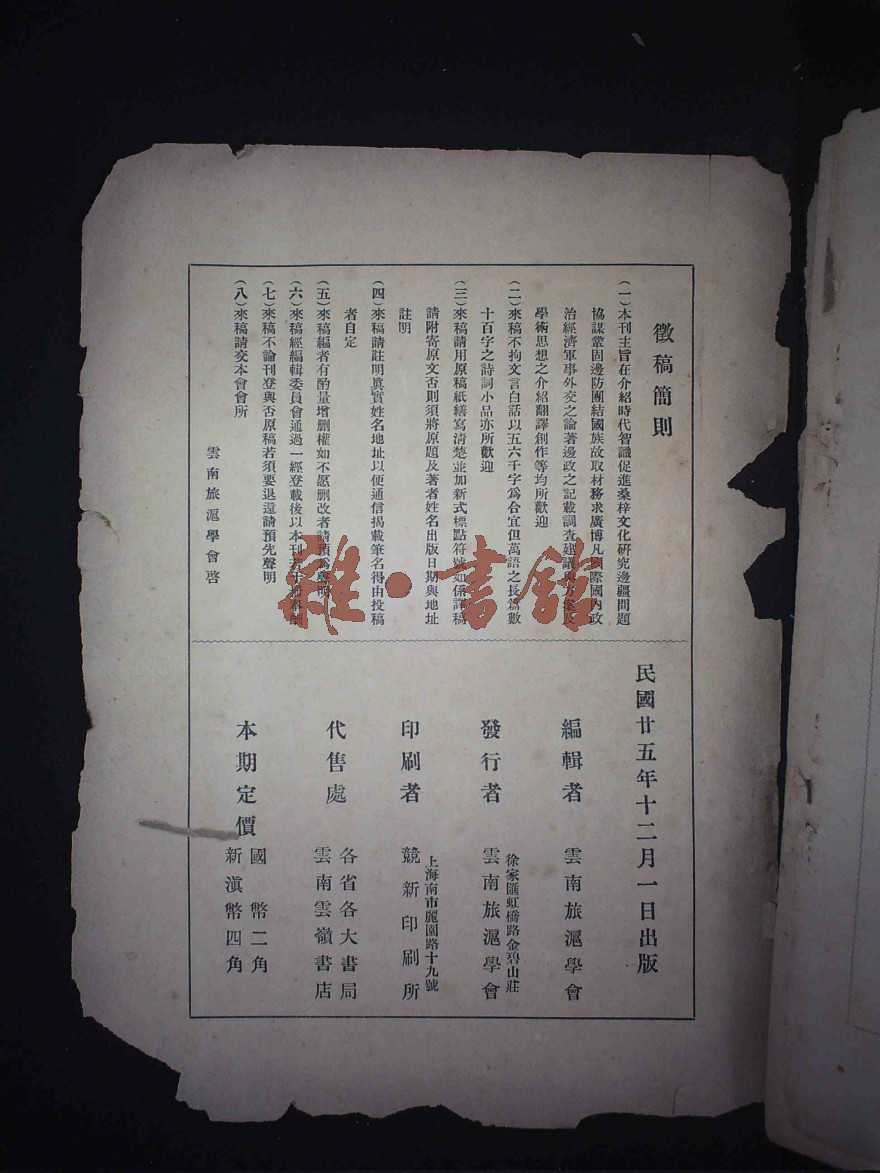 徵稿簡則
(一)本刊主旨在介紹時代智識促進桑梓文化硏究邊疆問題
協謀鞏固邊防團結國族故取材務求廣博凡國際國內政
治經濟軍事外交之論著邊政之記載調查建議與方案及
學術思想之介紹翻譯創作等均所歡迎
(二)來稿不拘文言白話以五六千字爲合宜但萬語之長篇數
十百字之詩詞小品亦所歡迎
(三)來稿請用原稿紙繕寫清楚並加新式標點符號如係譯稿
請附寄原文否則須將原題及著者姓名出版日期與地址
註明
(四)來稿請註明眞實姓名地址以便通信揭載筆名得由投稿
者自定
(五)來稿編者有酌量增删權如不愿删改者請預爲聲明
(六)來稿經編輯委員會通過一經登載後以本刊若干冊奉酬
(七)來稿不論刊登與否原稿若須要退還請預先聲明
(八)來稿請交本會會所
雲南旅滬學會啓
民國廿五年十二月一日出版
編輯者 雲南旅滬學會
徐家匯虹橋路金碧山莊
發行者 雲南旅滬學會
上海南市麗園路十九號
印刷者 競新印刷所
代售處 各省各大書局
雲南雲嶺書店
本期定價 國幣二角
新滇幣四角
雜·書館